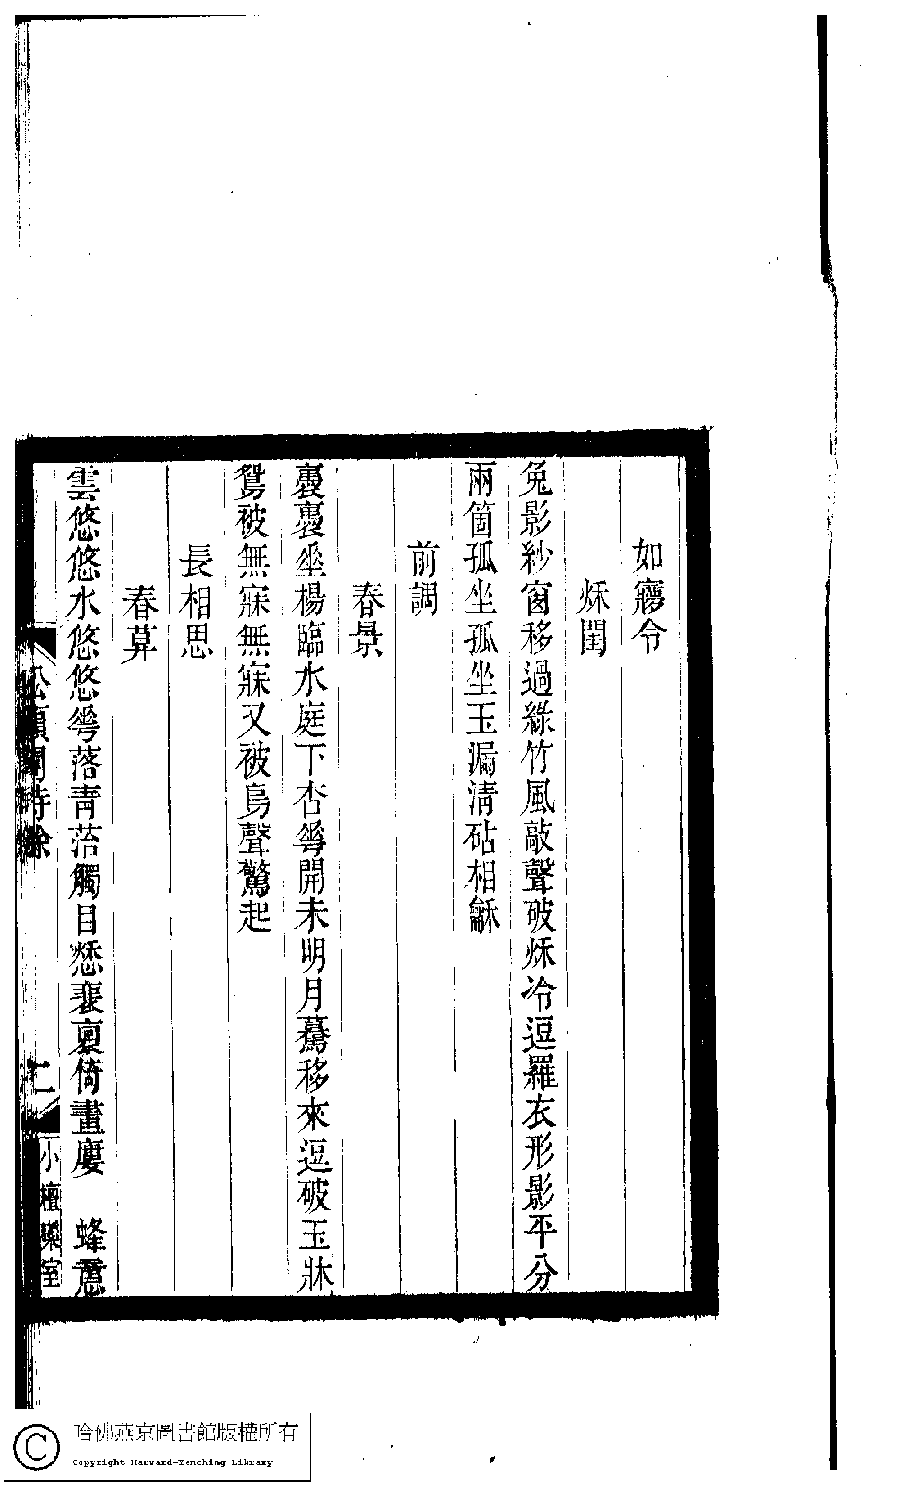 如寢令
秌閨
兔影紗窗移過綠竹風敲聲破秌冷逗羅衣形影平分
兩箇孤坐孤坐玉漏淸砧相龢
前調
春景
裊裊垂楊臨水庭下杏蕚開未明月驀移來逗破玉牀
鴛被無寐無寐又被鳥聲驚起
長相思
春莫
雲悠悠水悠悠蕚落靑萿觸目愁裴裒倚畫廔　蜂意
松
閣詩餘
二
小檀欒室
哈佛燕京圖書館版權所有
Copyright Harvard-Yenching Library